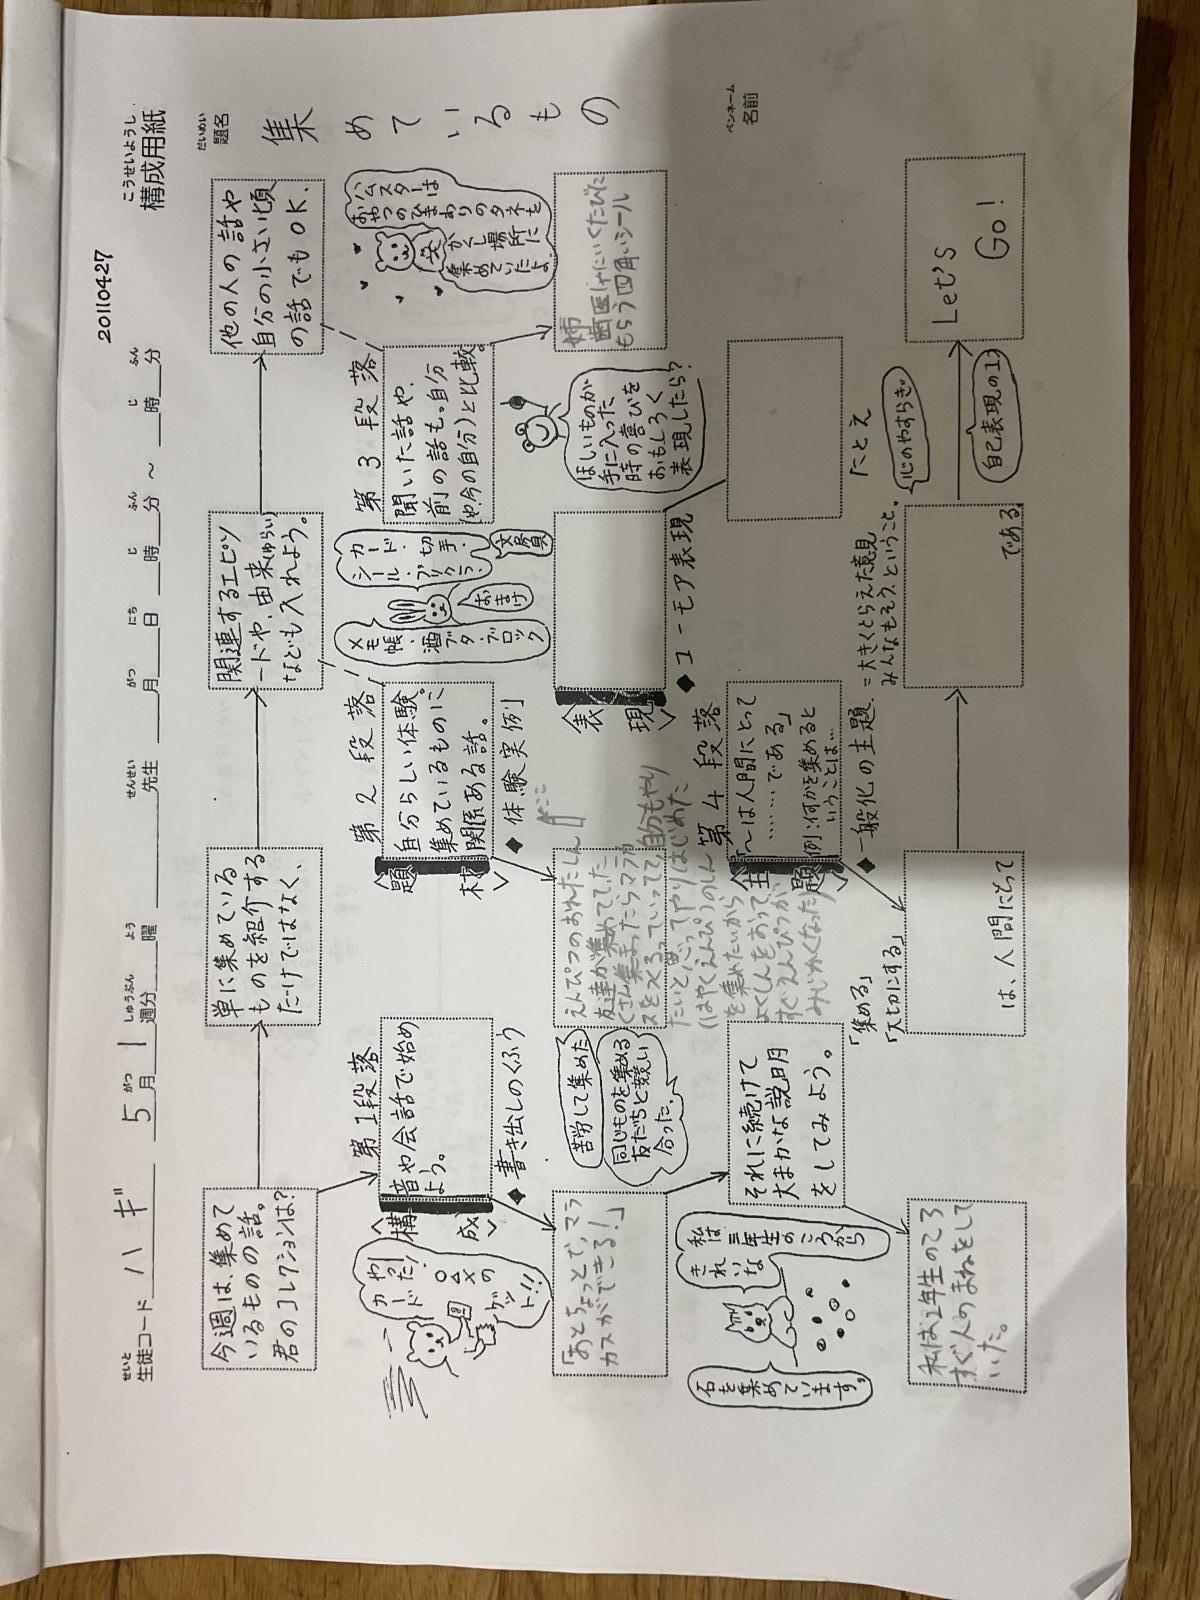 20110427
こうせいようし
構成用紙
せいと
生徒コード ハギ 5月 1週分 曜 先生 月 日 時 分 ～ 時 分
がつ しゅうぶん よう せんせい がつ にち じ ふん じ ふん
だいめい
題名
集めているもの
ペンネーム
名前
今週は、集めて
いるものの話。
君のコレクションは?
単に集めている
ものを紹介する
だけではなく、
関連するエピソ
ードや、由来(ゆらい)
なども入れよう。
他の人の話や
自分の小さい頃
の話でもOK.
第1段落
<構成>
音や会話で始め
よう。
◆書き出しのくふう
やった!
カード
○△×の
ゲット!!
「あとちょっとで、マラ
カスができる!」
それに続けて
大まかな説明
をしてみよう。
私は
三年生のころから
きれいな
石を集めています。
私は1年生のころ
すぐ人のまねをして
いた。
第2段落
<題材>
自分らしい体験。
集めているものに
関係ある話。
◆体験実例
メモ帳・酒ブタ・ブロック
カード・切手・
シール・プリクラ・
おまけ
文房具
苦労して集めた
同じものを集める
友だちと競い
合った.
えんぴつのおれたしん
友達が集めてて、た
くさん集まったらマラカ
スをつくるっていってて、自分もやり
たいと思ってやりはじめた
(はやくえんぴつのしん
を集めたいから
よくしんをおって
すぐえんぴつが
みじかくなった)
第3段落
聞いた話や、
前の話も。自分
(や今の自分)と比較。
ハムスターは
おやつのひまわりのタネを
かくし場所に
集めていたよ.
姉
歯医しゃにいくたびに
もらう四角いシール
<表現>
◆ユーモア表現
ほしいものが
手に入った
時の喜びを
おもしろく
表現したら?
たとえ
第4段落
<主題>
「〜は人間にとって
………である」
例:何かを集めると
いうことは…
◆一般化の主題.
=大きくとらえた意見
みんなもそう、ということ。
心のやすらぎ。
自己表現の1
「集める」
「大切にする」
は、人間にとって
である
Let's
Go!